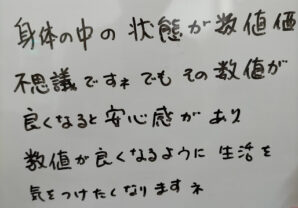 身体の中の状態が数値価
不思議ですネ でもその数値が
良くなると安心感があり
数値が良くなるように生活を
気をつけたくなりますネ